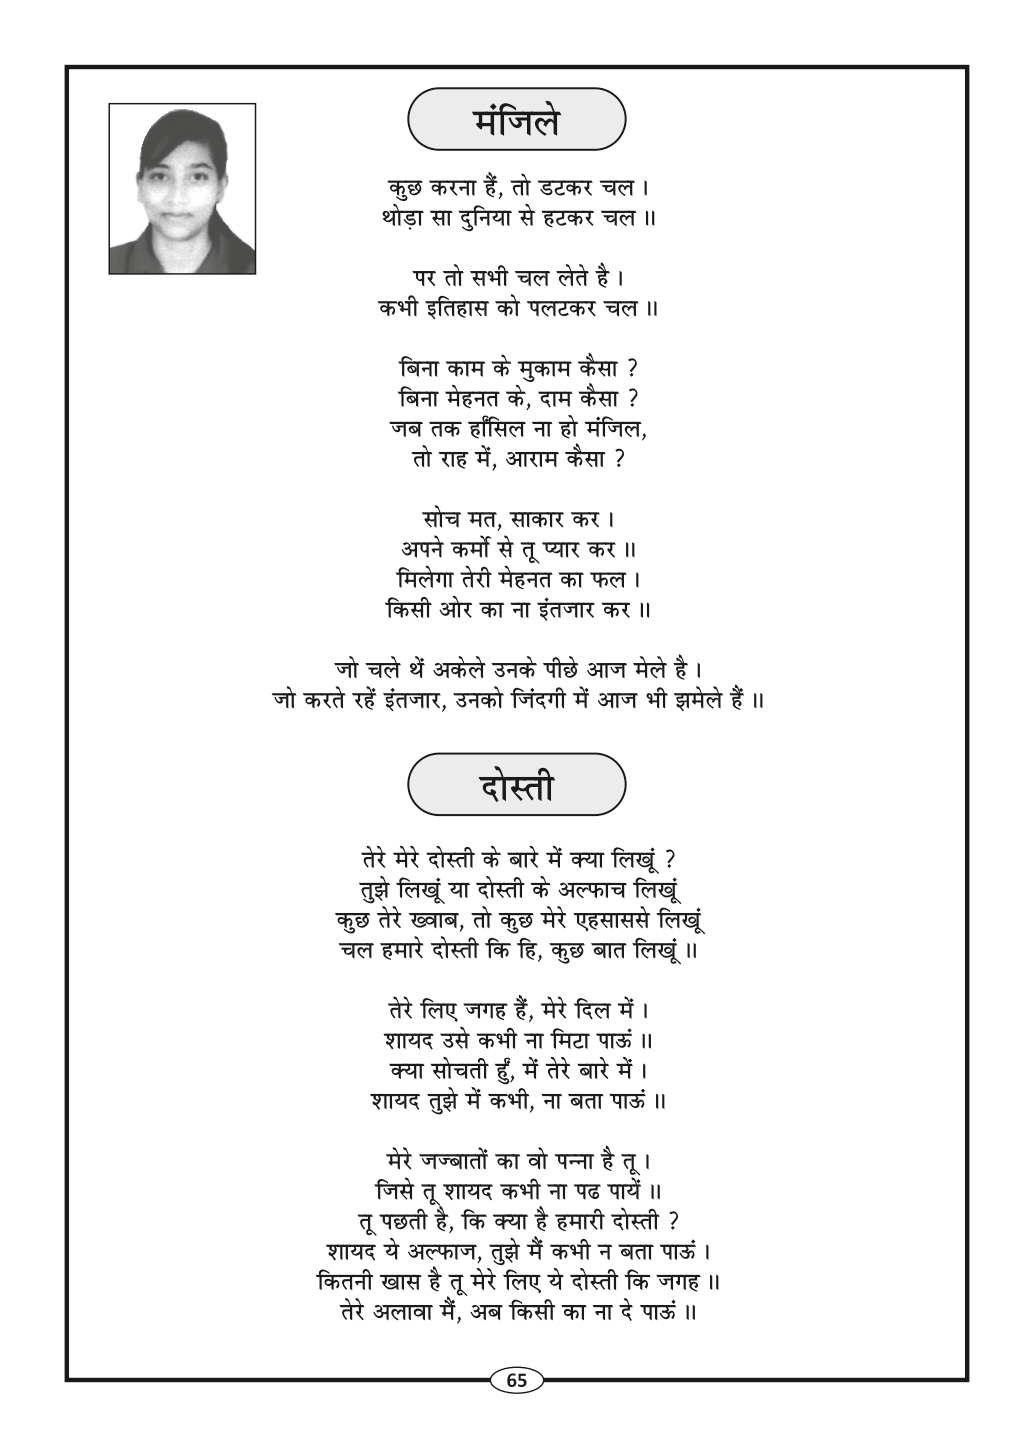 मंजिले
कुछ करना हैं, तो डटकर चल ।
थोड़ा सा दुनिया से हटकर चल ॥
पर तो सभी चल लेते है ।
कभी इतिहास को पलटकर चल ॥
बिना काम के मुकाम कैसा ?
बिना मेहनत के, दाम कैसा ?
जब तक हाँसिल ना हो मंजिल,
तो राह में, आराम कैसा ?
सोच मत, साकार कर ।
अपने कर्मो से तू प्यार कर ॥
मिलेगा तेरी मेहनत का फल ।
किसी ओर का ना इंतजार कर ॥
जो चले थें अकेले उनके पीछे आज मेले है ।
जो करते रहें इंतजार, उनको जिंदगी में आज भी झमेले हैं ॥
दोस्ती
तेरे मेरे दोस्ती के बारे में क्या लिखूं ?
तुझे लिखूं या दोस्ती के अल्फाच लिखूं
कुछ तेरे ख्वाब, तो कुछ मेरे एहसाससे लिखूं
चल हमारे दोस्ती कि हि, कुछ बात लिखूं ॥
तेरे लिए जगह हैं, मेरे दिल में ।
शायद उसे कभी ना मिटा पाऊं ॥
क्या सोचती हुँ, में तेरे बारे में ।
शायद तुझे में कभी, ना बता पाऊं ॥
मेरे जज्बातों का वो पन्ना है तू ।
जिसे तू शायद कभी ना पढ पायें ॥
तू पछती है, कि क्या है हमारी दोस्ती ?
शायद ये अल्फाज, तुझे मैं कभी न बता पाऊं ।
कितनी खास है तू मेरे लिए ये दोस्ती कि जगह ॥
तेरे अलावा मैं, अब किसी का ना दे पाऊं ॥
65